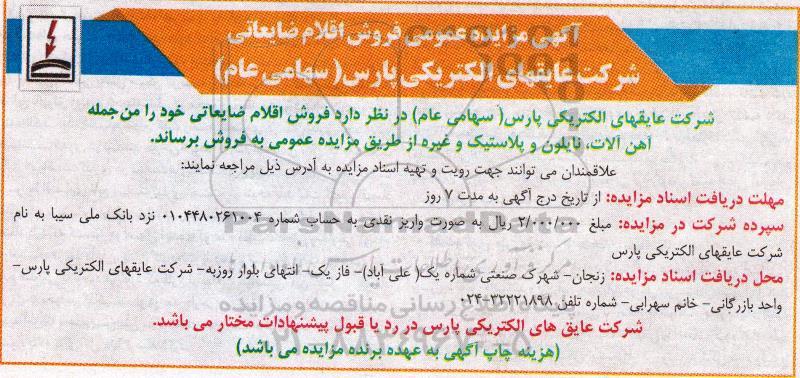 آگهی مزایده عمومی فروش اقلام ضایعاتی
شرکت عایقهای الکتریکی پارس( سهامی عام)
شرکت عایقهای الکتریکی پارس( سهامی عام) در نظر دارد فروش اقلام ضایعاتی خود را من جمله
آهن آلات، نایلون و پلاستیک و غیره از طریق مزایده عمومی به فروش برساند.
علاقمندان می توانند جهت رویت و تهیه اسناد مزایده به آدرس ذیل مراجعه نمایند:
مهلت دریافت اسناد مزایده: از تاریخ درج آگهی به مدت ۷ روز
سپرده شرکت در مزایده: مبلغ ۲/۰۰۰/۰۰۰ ریال به صورت واریز نقدی به حساب شماره ۰۱۰۴۴۸۰۲۶۱۰۰۴ نزد بانک ملی سیبا به نام
شرکت عایقهای الکتریکی پارس
محل دریافت اسناد مزایده: زنجان- شهرک صنعتی شماره یک( علی آباد)- فاز یک- انتهای بلوار روزبه- شرکت عایقهای الکتریکی پارس-
واحد بازرگانی- خانم سهرابی- شماره تلفن ۳۲۲۲۱۸۹۸-۰۲۴
شرکت عایق های الکتریکی پارس در رد یا قبول پیشنهادات مختار می باشد.
(هزینه چاپ آگهی به عهده برنده مزایده می باشد)
ParsNamadData
پایگاه اطلاع رسانی مناقصه و مزایده